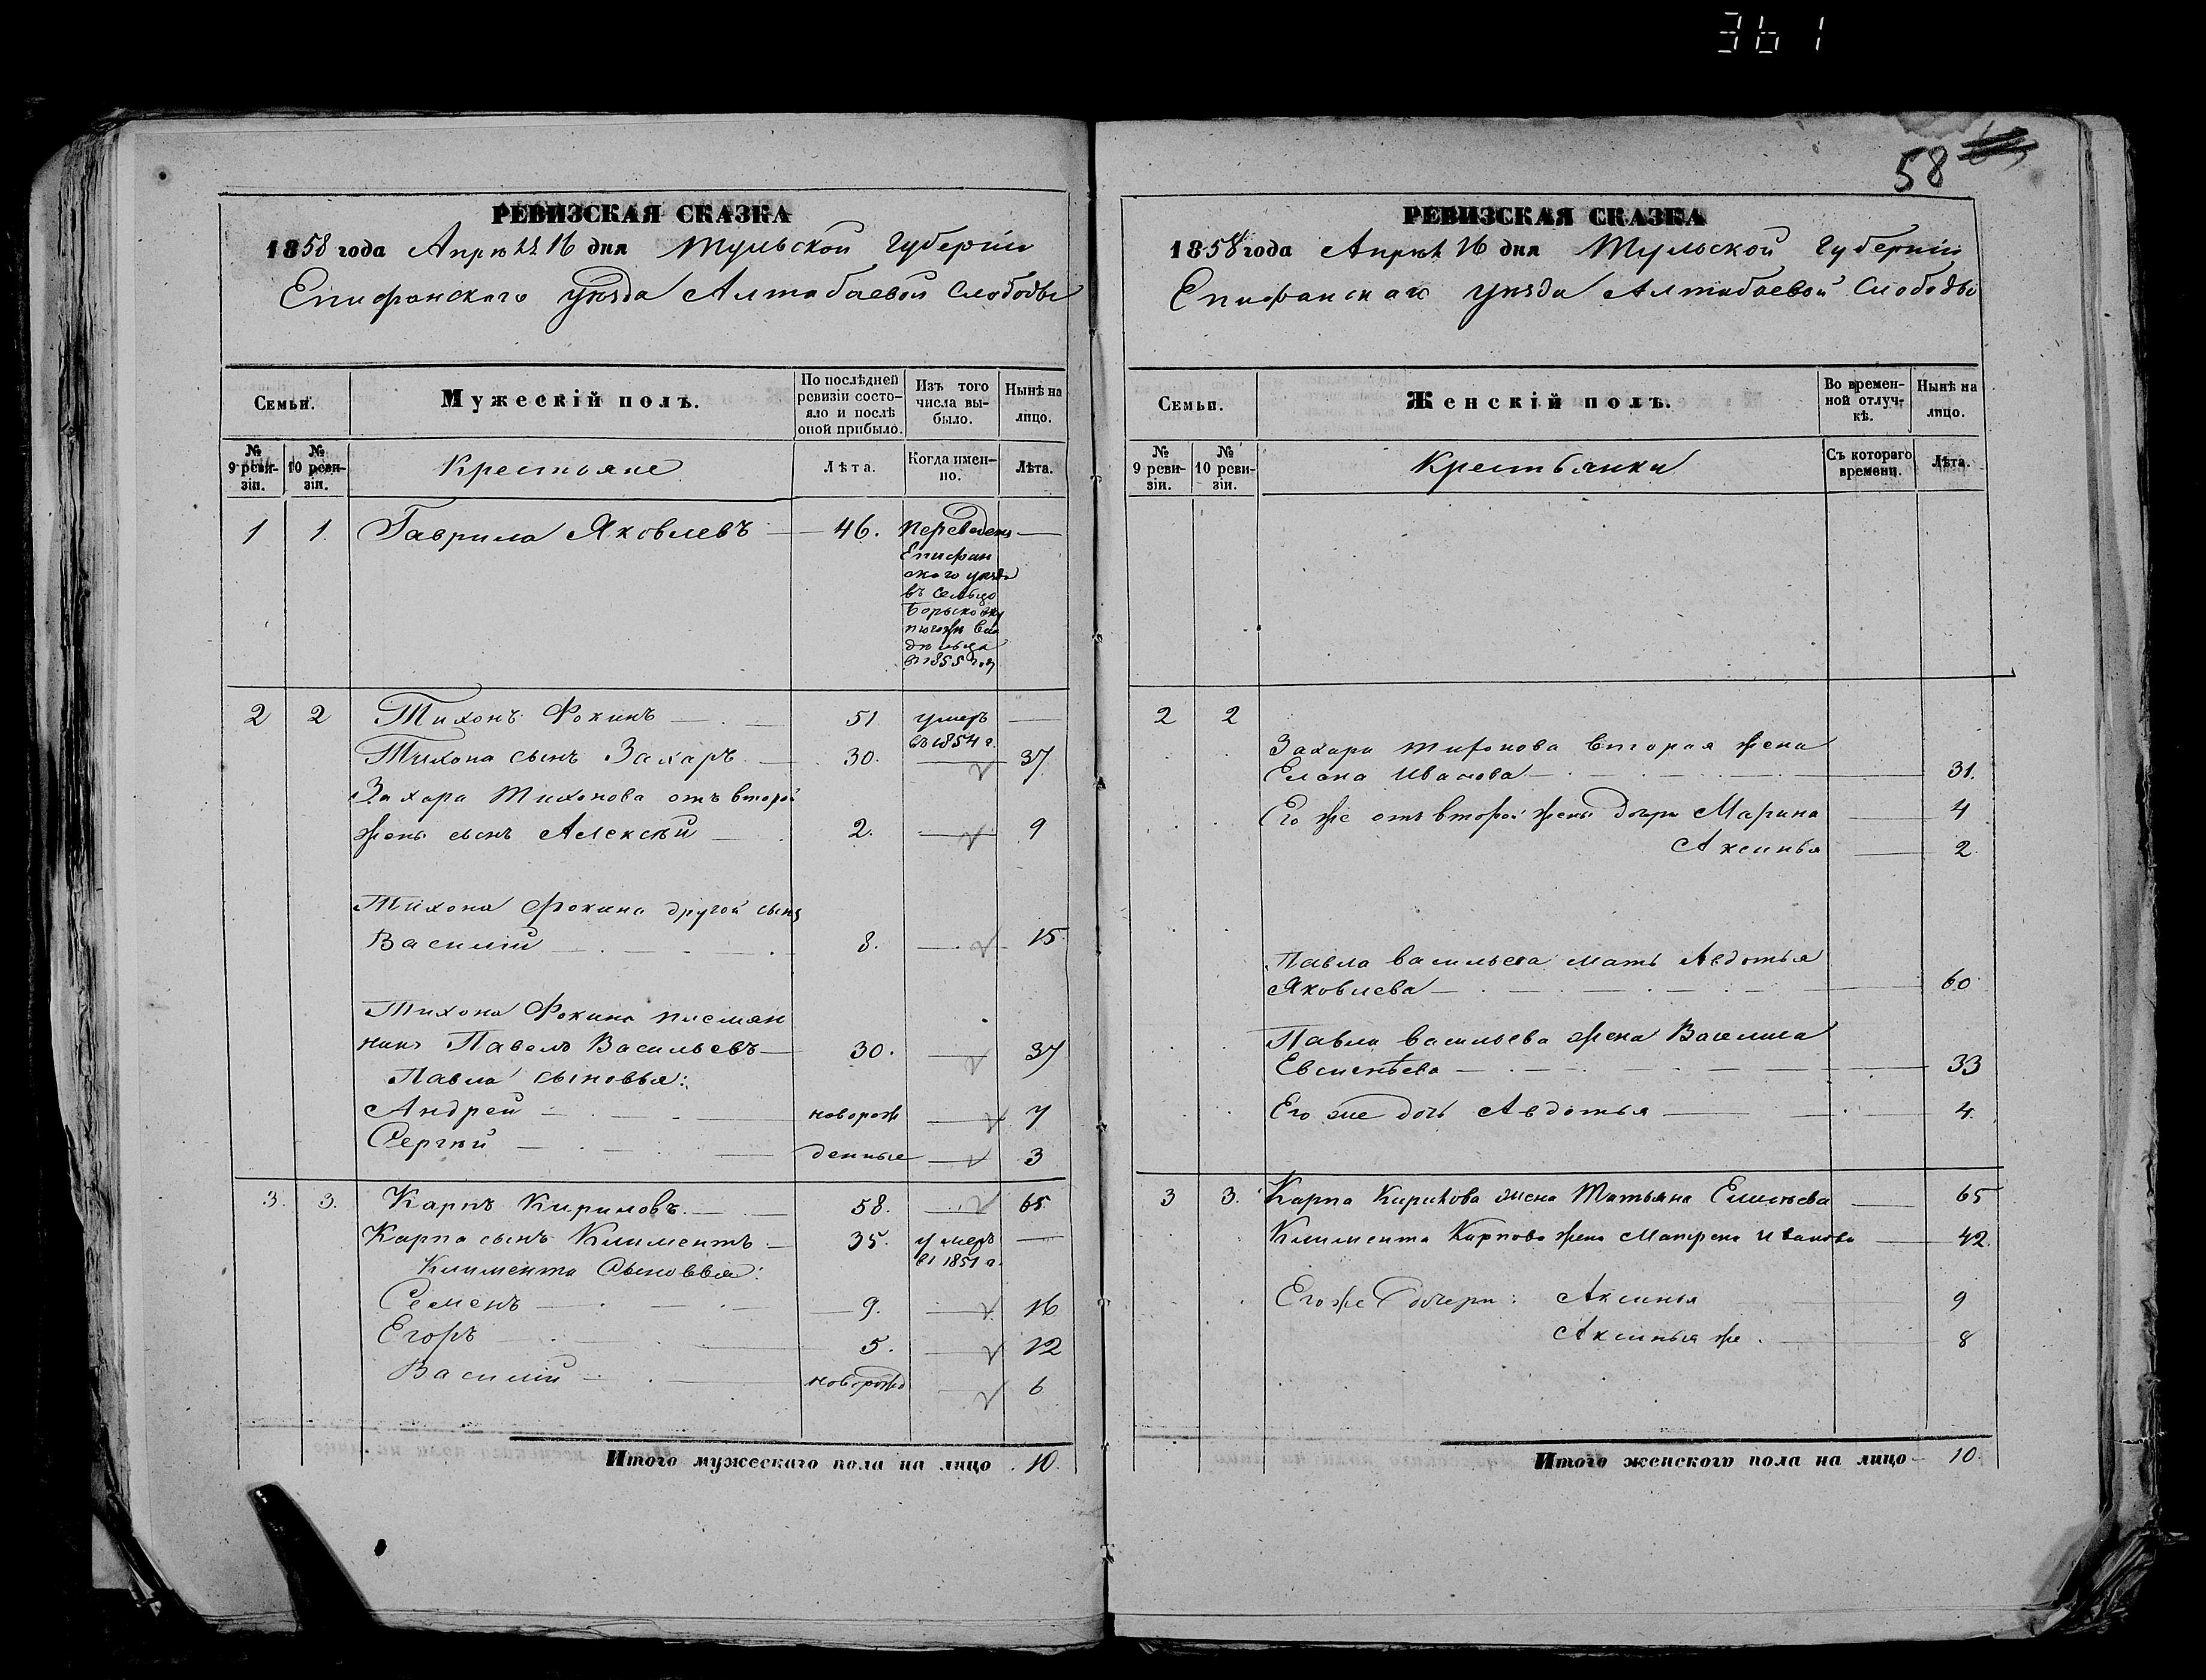 361
РЕВИЗСКАЯ СКАЗКА
1858 года Апрѣля 16 дня Тульской Губерніи
Епифанскаго уѣзда Алтабаевой Слободы
Семьи.
Мужескій полъ.
По послѣдней ревизіи состояло и послѣ оной прибыло.
Изъ того числа выбыло.
Нынѣ на лицо.
№ 9 ревизіи.
№ 10 ревизіи.
Крестьяне
Лѣта.
Когда именно.
Лѣта.
1 1. Гаврила Яковлевъ — 46. переведенъ —
Епифан
скаго уѣзда
въ сельцо
Борысковку
тогожъ вла
дѣльца
въ 1855 году
2 2 Тихонъ Фокинъ — 51 умеръ —
въ 1854 г.
Тихона сынъ Захаръ — 30. — 37
Захара Тихонова отъ второй
жены сынъ Алексѣй — 2. — 9
Тихона Фокина другой сынъ
Василій — 8. — 15
Тихона Фокина племян
никъ Павелъ Васильевъ — 30. — 37
Павла сыновья:
Андрей — новорож — 7
Сергѣй — денные — 3
3. 3. Карпъ Кириловъ — 58. 65
Карпа сынъ Климентъ — 35. умеръ —
въ 1851 г.
Климента Сыновья:
Семенъ — 9. — 16
Егоръ — 5. — 12
Василій — новорожд — 6
Итого мужескаго пола на лицо 10.
58
РЕВИЗСКАЯ СКАЗКА
1858 года Апрѣля 16 дня Тульской Губерніи
Епифанскаго уѣзда Алтабаевой Слободы
Семьи.
Женскій полъ.
Во временной отлучкѣ.
Нынѣ на лицо.
№ 9 ревизіи.
№ 10 ревизіи.
Крестьянки
Съ котораго времени.
Лѣта.
2 2
Захара Тихонова вторая жена
Елена Иванова — 31.
Его же отъ второй жены дочери Марина — 4
Аксинья — 2
Павла Васильева мать Авдотья
Яковлева — 60
Павла Васильева жена Василиса
Евсигнѣева — 33
Его же дочь Авдотья — 4.
3 3. Карпа Кирилова жена Татьяна — 65
Климента Карпова жена Матрена Иванова — 42.
Его же дочери: Аксинья 9
Аксинья же — 8
Итого женского пола на лицо — 10.